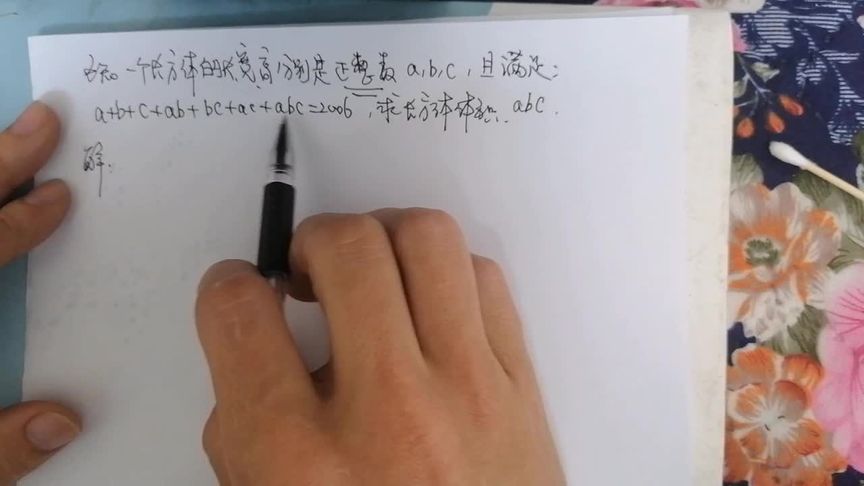 已知一个长方体的长、宽、高分别是正整数 a,b,c,且满足:
a+b+c+ab+bc+ac+abc=2006,求长方体体积 abc.
解: